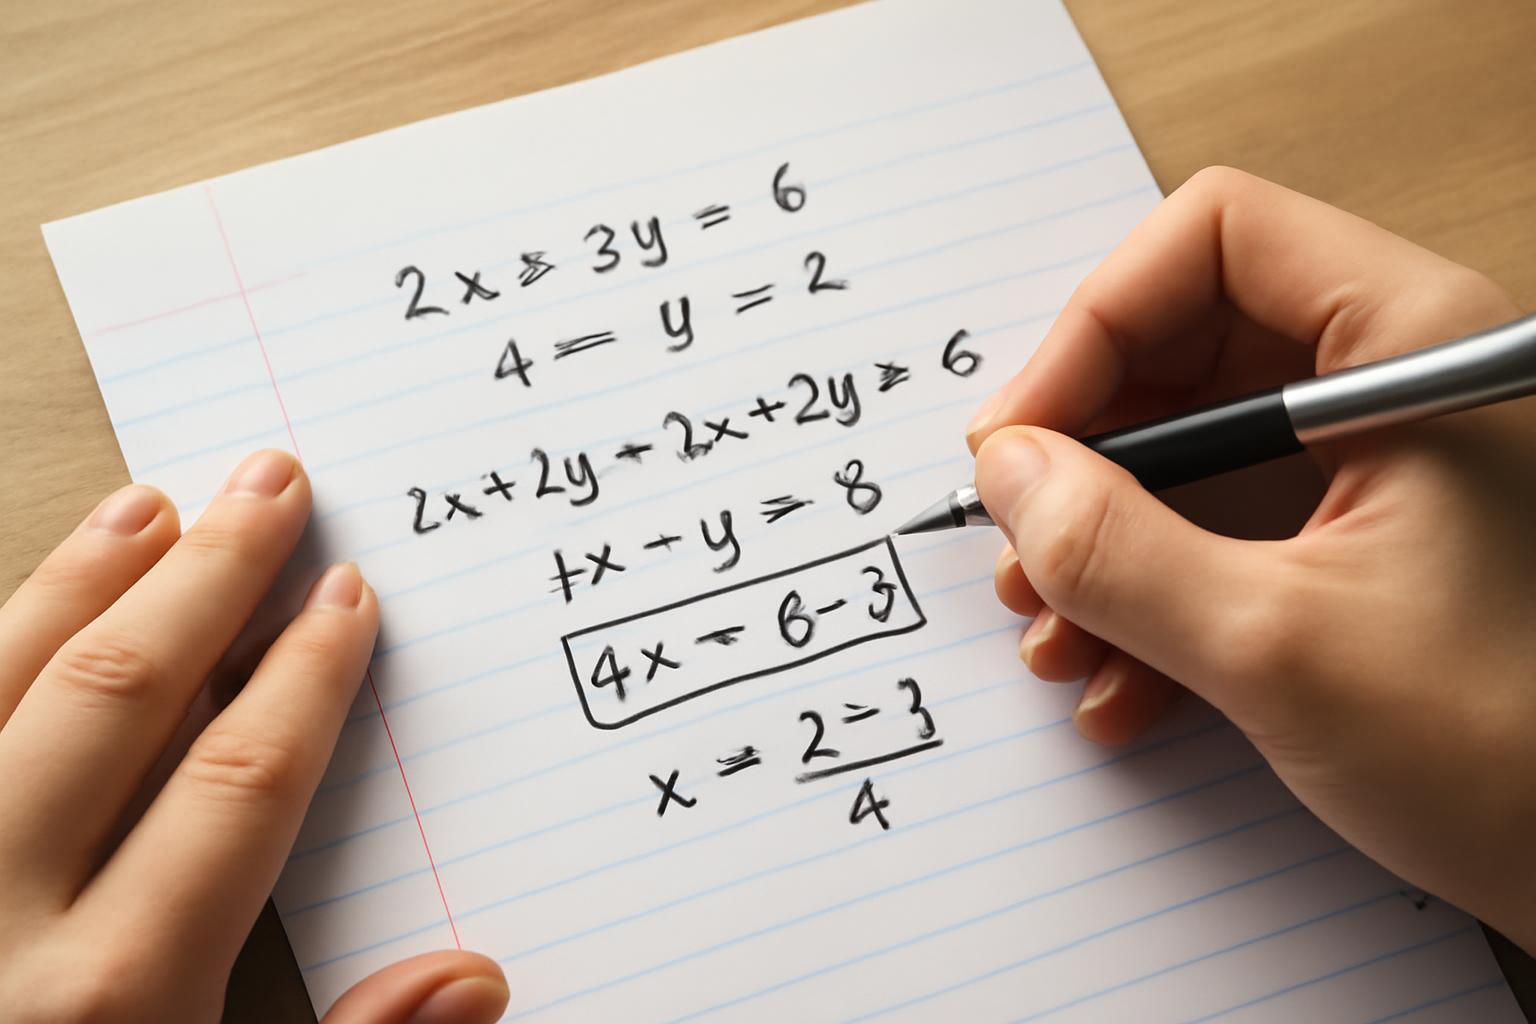 2x = 3y = 6
4 = y = 2
2x + 2y - 2x + 2y = 6
+x - y = 8
4x - 6 - 3
x = 2 - 3
4